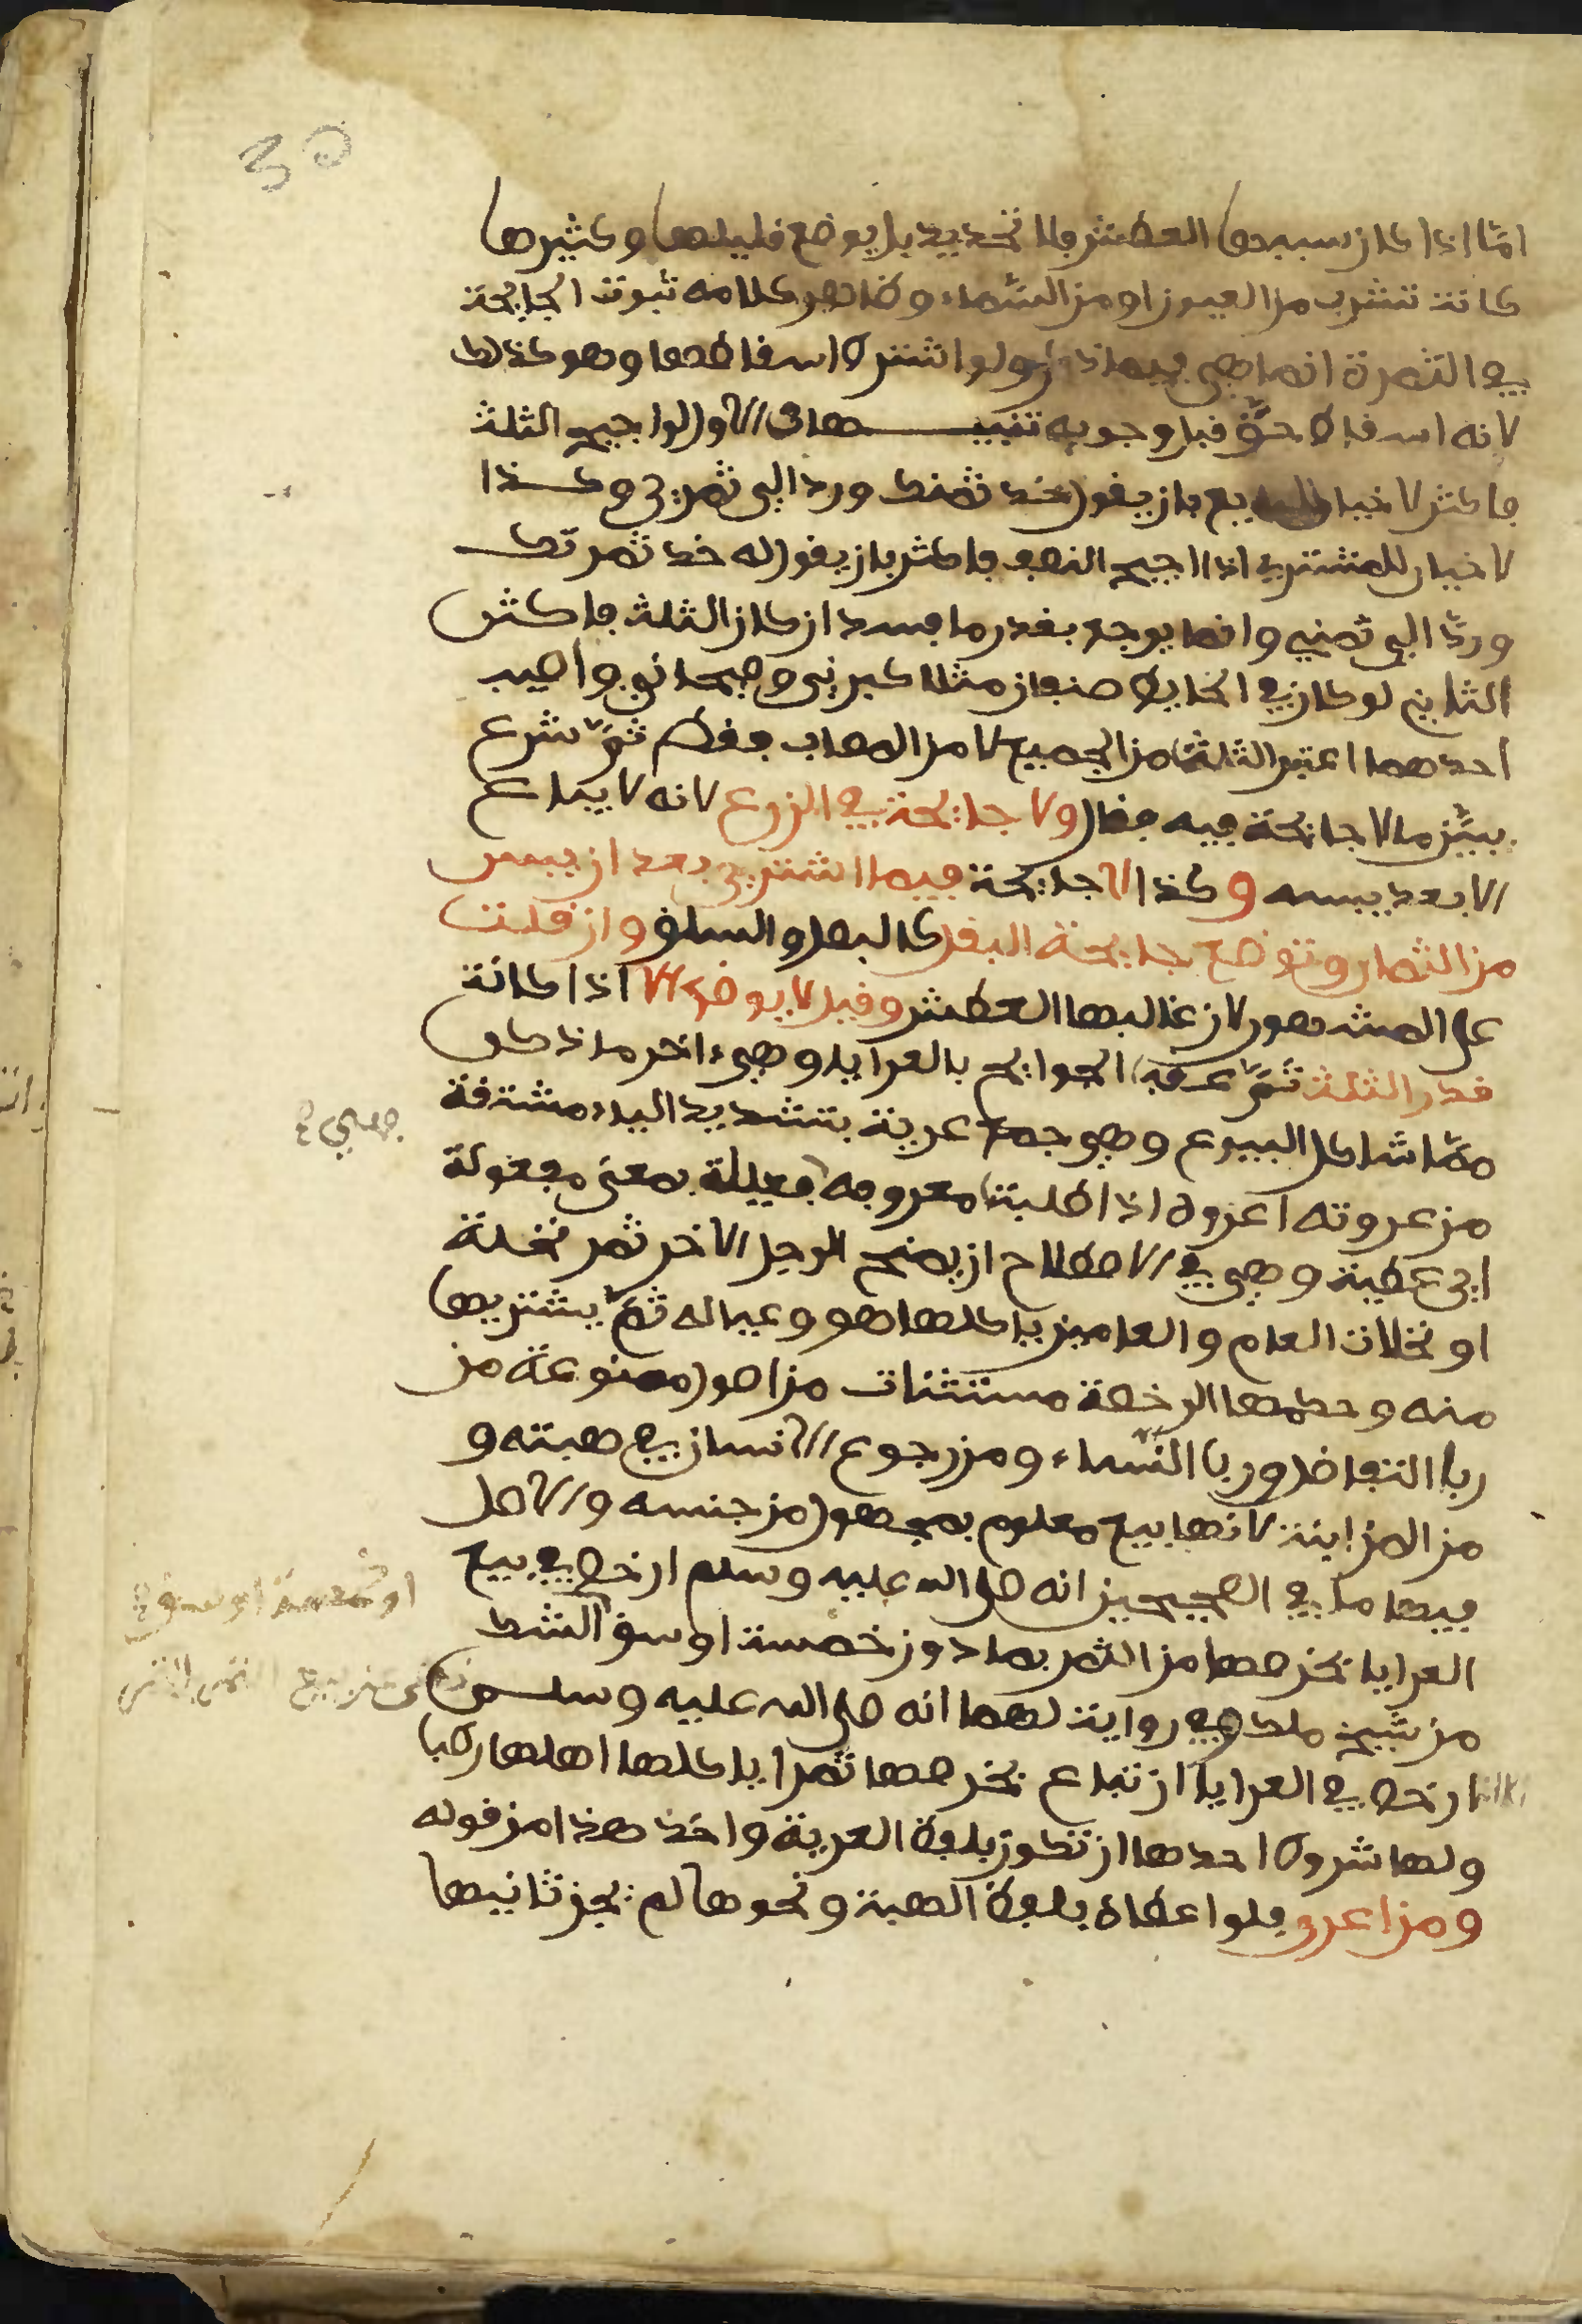 30
اما اذا كان سببها العطش فلا تحديد بل يوضع قليلها وكثيرها
كانت تشرب من العيون او من السماء وظاهر كلامه ثبوت الجايحة
في الثمرة انما هي فيما ذكر ولو اشترط اسقاطها وهو كذلك
لانه اسقاط حق قبل وجوبه تنبيهات الاول لو اجيح الثلث
فاكثر لا خيار للبايع بان يقول خذ ثمنك ورد الي ثمرتي وكذا
لا خيار للمشتري اذا اجيح النصف فاكثر بان يقول له خذ ثمرتك
ورد الي ثمني وانما يوجع بقدر ما فسد ان كان الثلث فاكثر
الثاني لو كان في الحايط صنفان مثلا كبرني وصيحاني واصيب
احدهما اعتبر الثلث من الجميع لا من المصاب فقط ثم شرع
يبين ما لا جائحة فيه فقال ولا جايحة في الزرع لانه لا يباع
الا بعد يبسه وكذا لا جايحة فيما اشتري بعد ان يبس
من الثمار وتوضع جايحة البقل كالبصل والسلق وان قلت
على المشهور لان غالبها العطش وقيل لا يوضع الا اذا كانت
قدر الثلث ثم عقب الجوايح بالعرايا وهي ءاخر ما ذكر
مما شاكل البيوع وهي جمع عرية بتشديد الياء مشتقة
من عروته اعروه اذا طلبت معروفه فعيلة بمعنى مفعولة
اي عطية وهي في الاصطلاح ان يمنح الرجل الاخر ثمر نخلة
او نخلات العام والعامين ياكلها هو وعياله ثم يشتريها
منه وحكمها الرخصة مستثنات من اصول ممنوعة من
ربا التفاضل وربا النساء ومن رجوع الانسان في هبته و
من المزابنة لانها بيع معلوم بمجهول من جنسه والاصل
فيها ما في الصحيحين انه صلى الله عليه وسلم ارخص في بيع
العرايا بخرصها من الثمر بما دون خمسة اوسق الشك
من شيخ ملك وفي رواية لهما انه صلى الله عليه وسلم
ارخص في العرايا ان تباع بخرصها ثمرا ياكلها اهلها رطبا
ولها شروط احدها ان تكون بلفظ العرية واخذ هذا من قوله
ومن اعرى فلو اعطاه بلفظ الهبة ونحوها لم يجز ثانيها